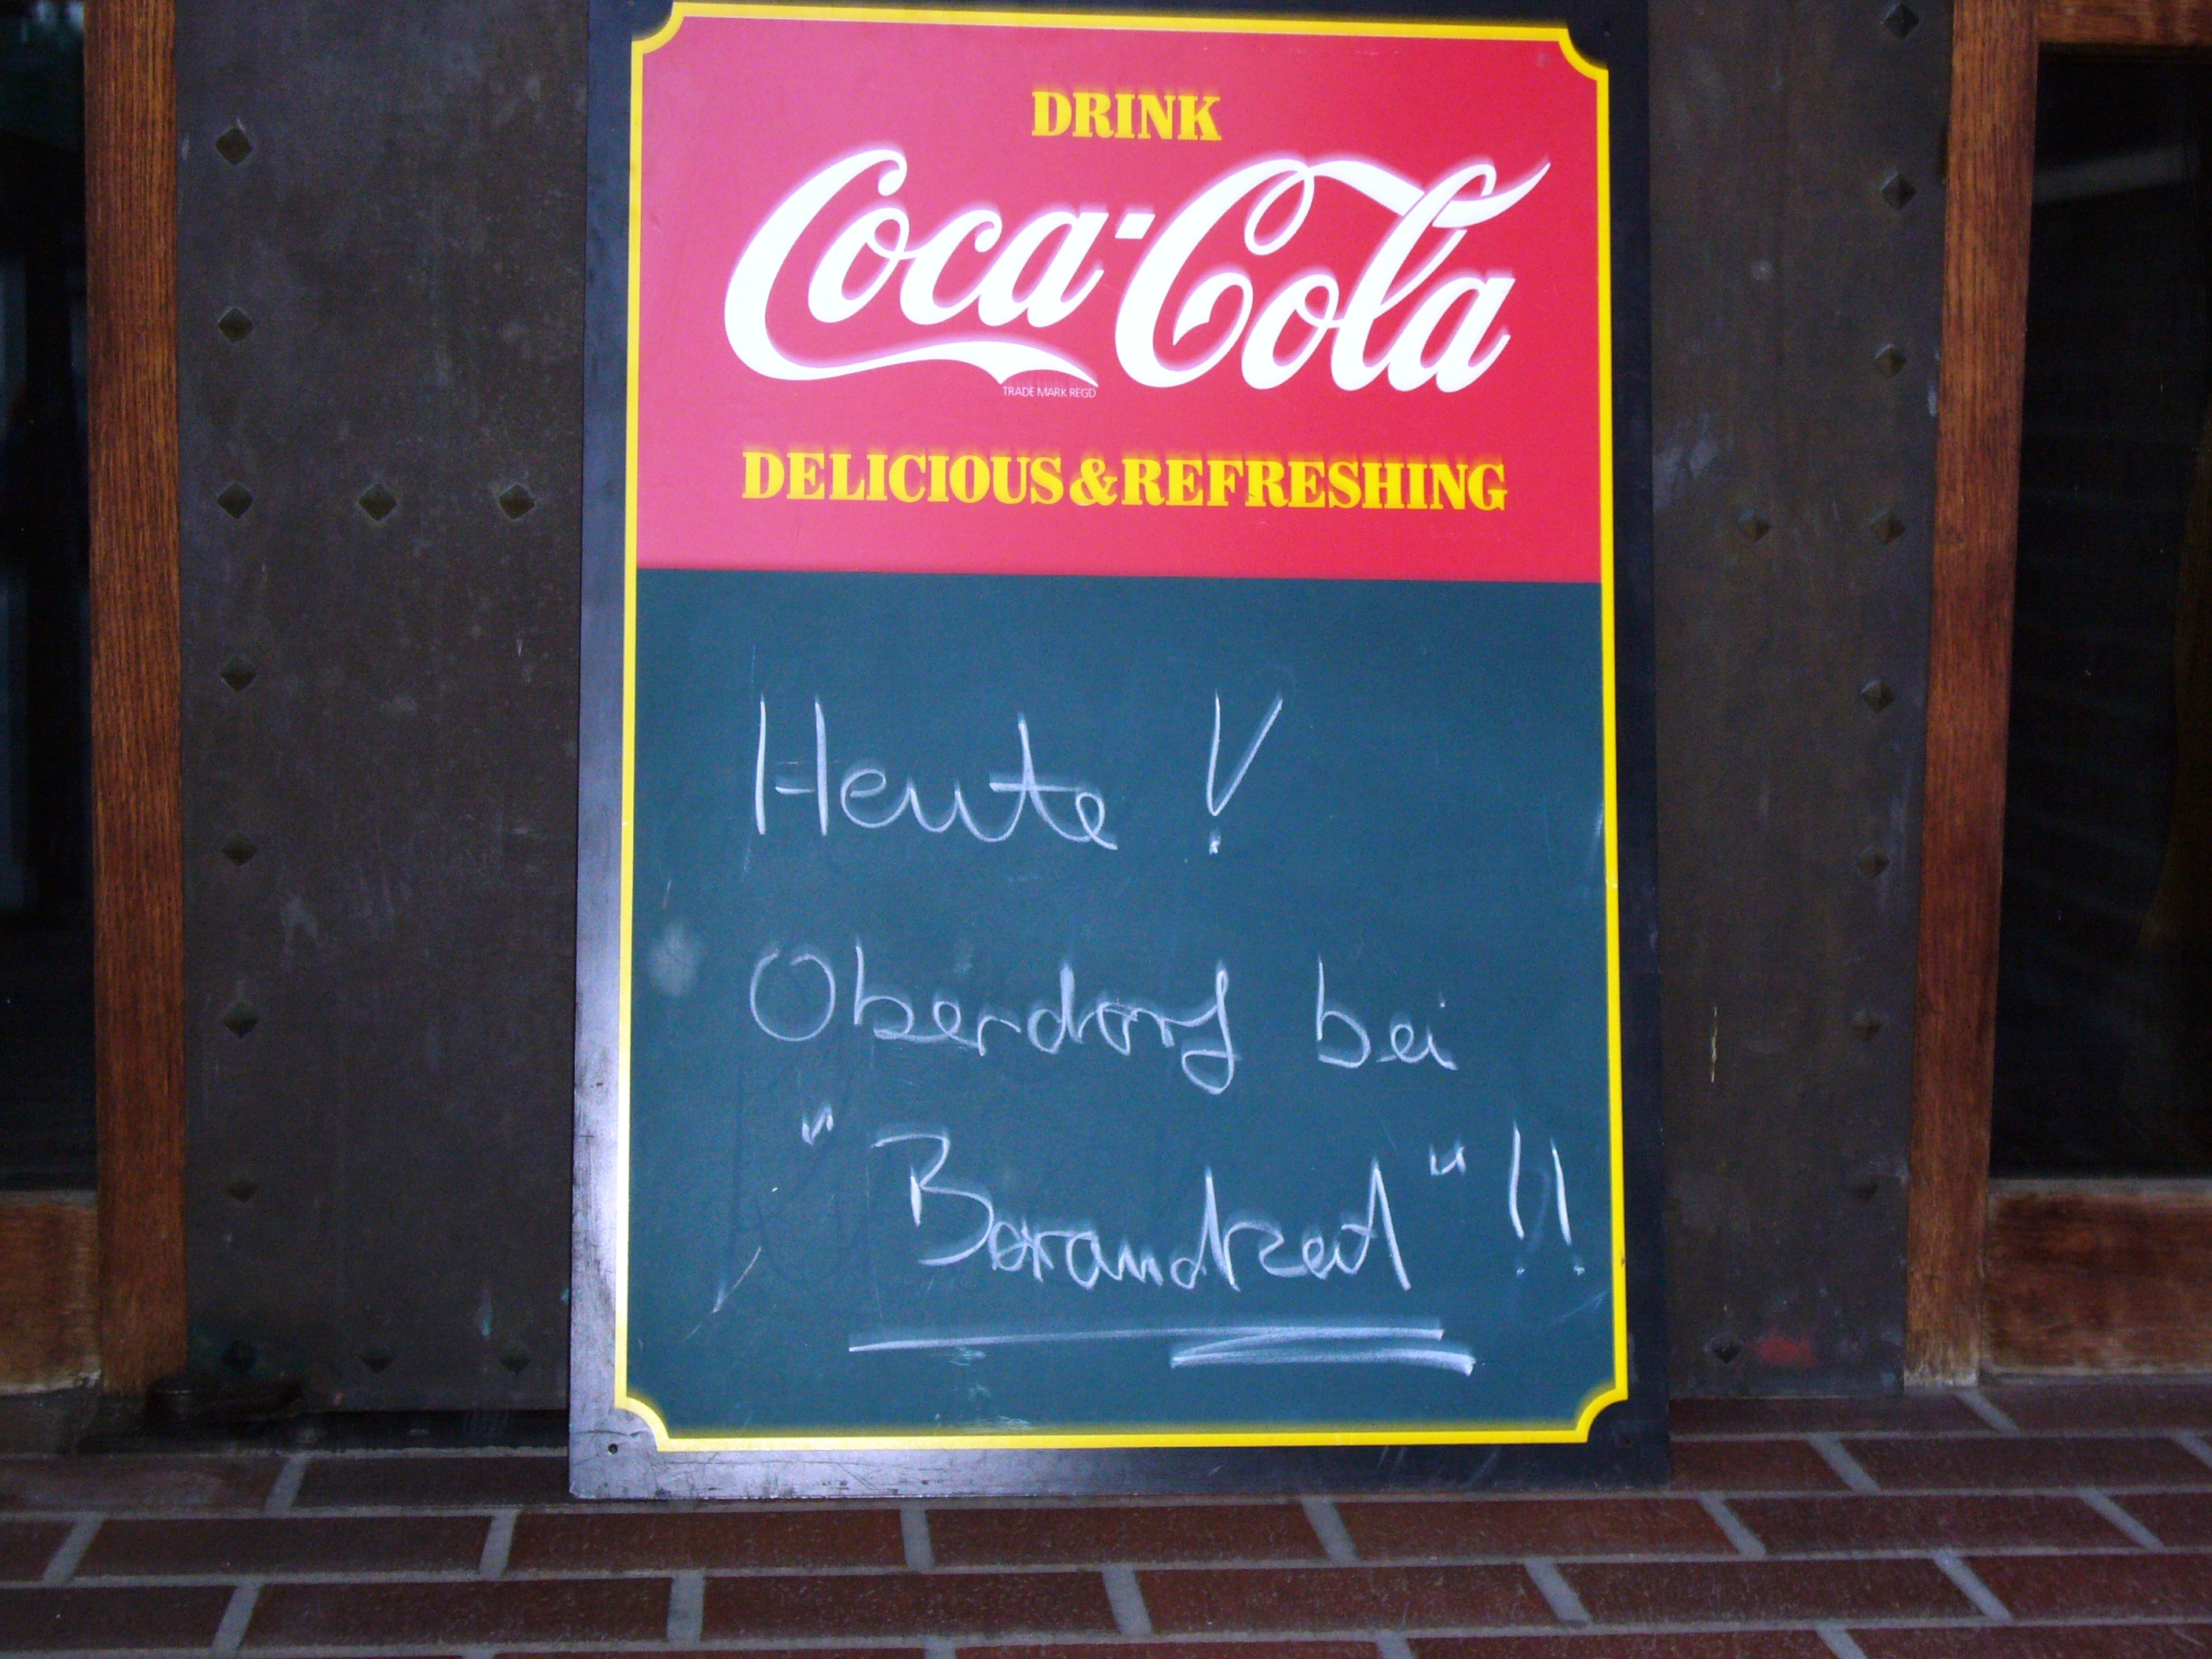 DRINK
Coca-Cola
TRADE MARK REGD
DELICIOUS & REFRESHING
Heute !
Oberdorf bei